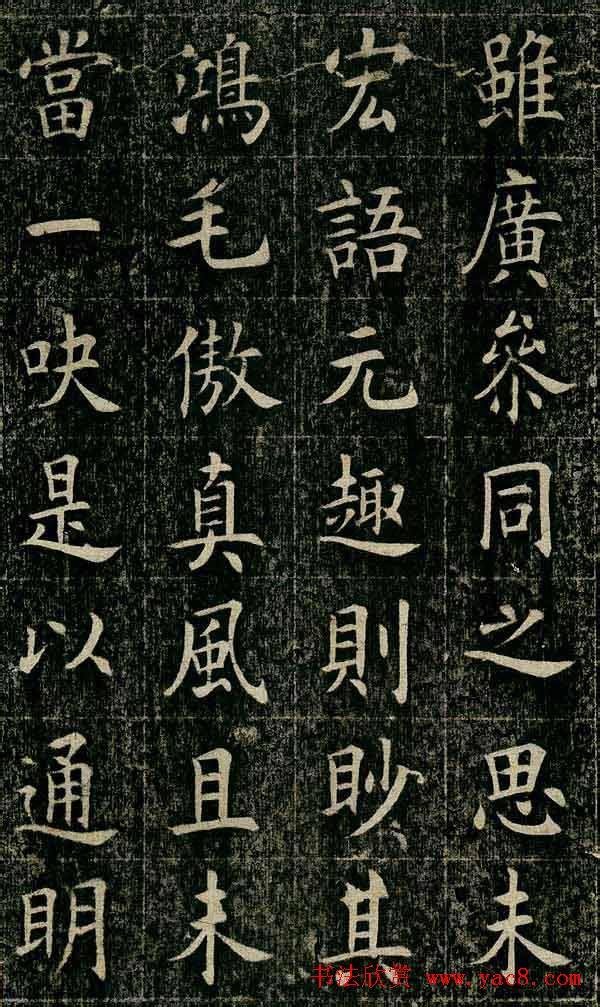 雖廣叅同之思未
宏語元趣則眇其
鴻毛傲真風且未
當一吷是以通明
书法欣赏 www.yac8.com